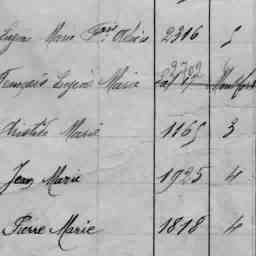 Eugène Marie Fçois Alexis 2316 5
François Eugène Marie 2707 Montfort
Aristide Marie 1165 3
Jean Marie 1925 4
Pierre Marie 1818 4